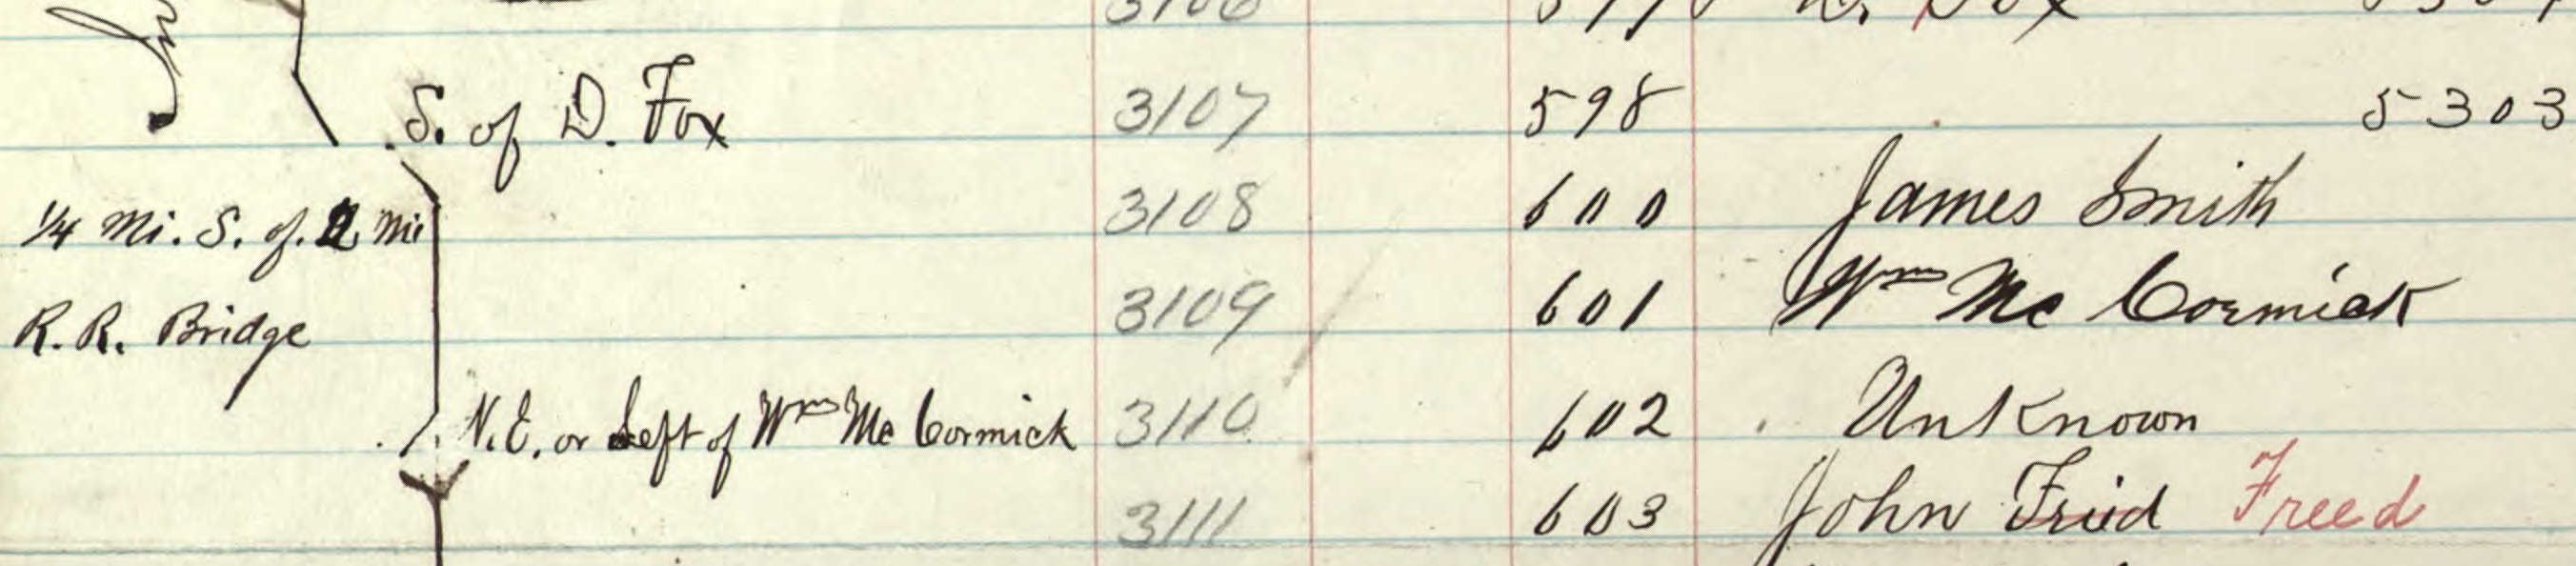 3106 597 D. Fox
S. of D. Fox 3107 598 5303
3108 600 James Smith
1/4 Mi. S. of. 2 Mi
3109 601 Wm Mc Cormick
R. R. Bridge
N.E. or Left of Wm Mc Cormick 3110 602 Unknown
3111 603 John Fried Freed